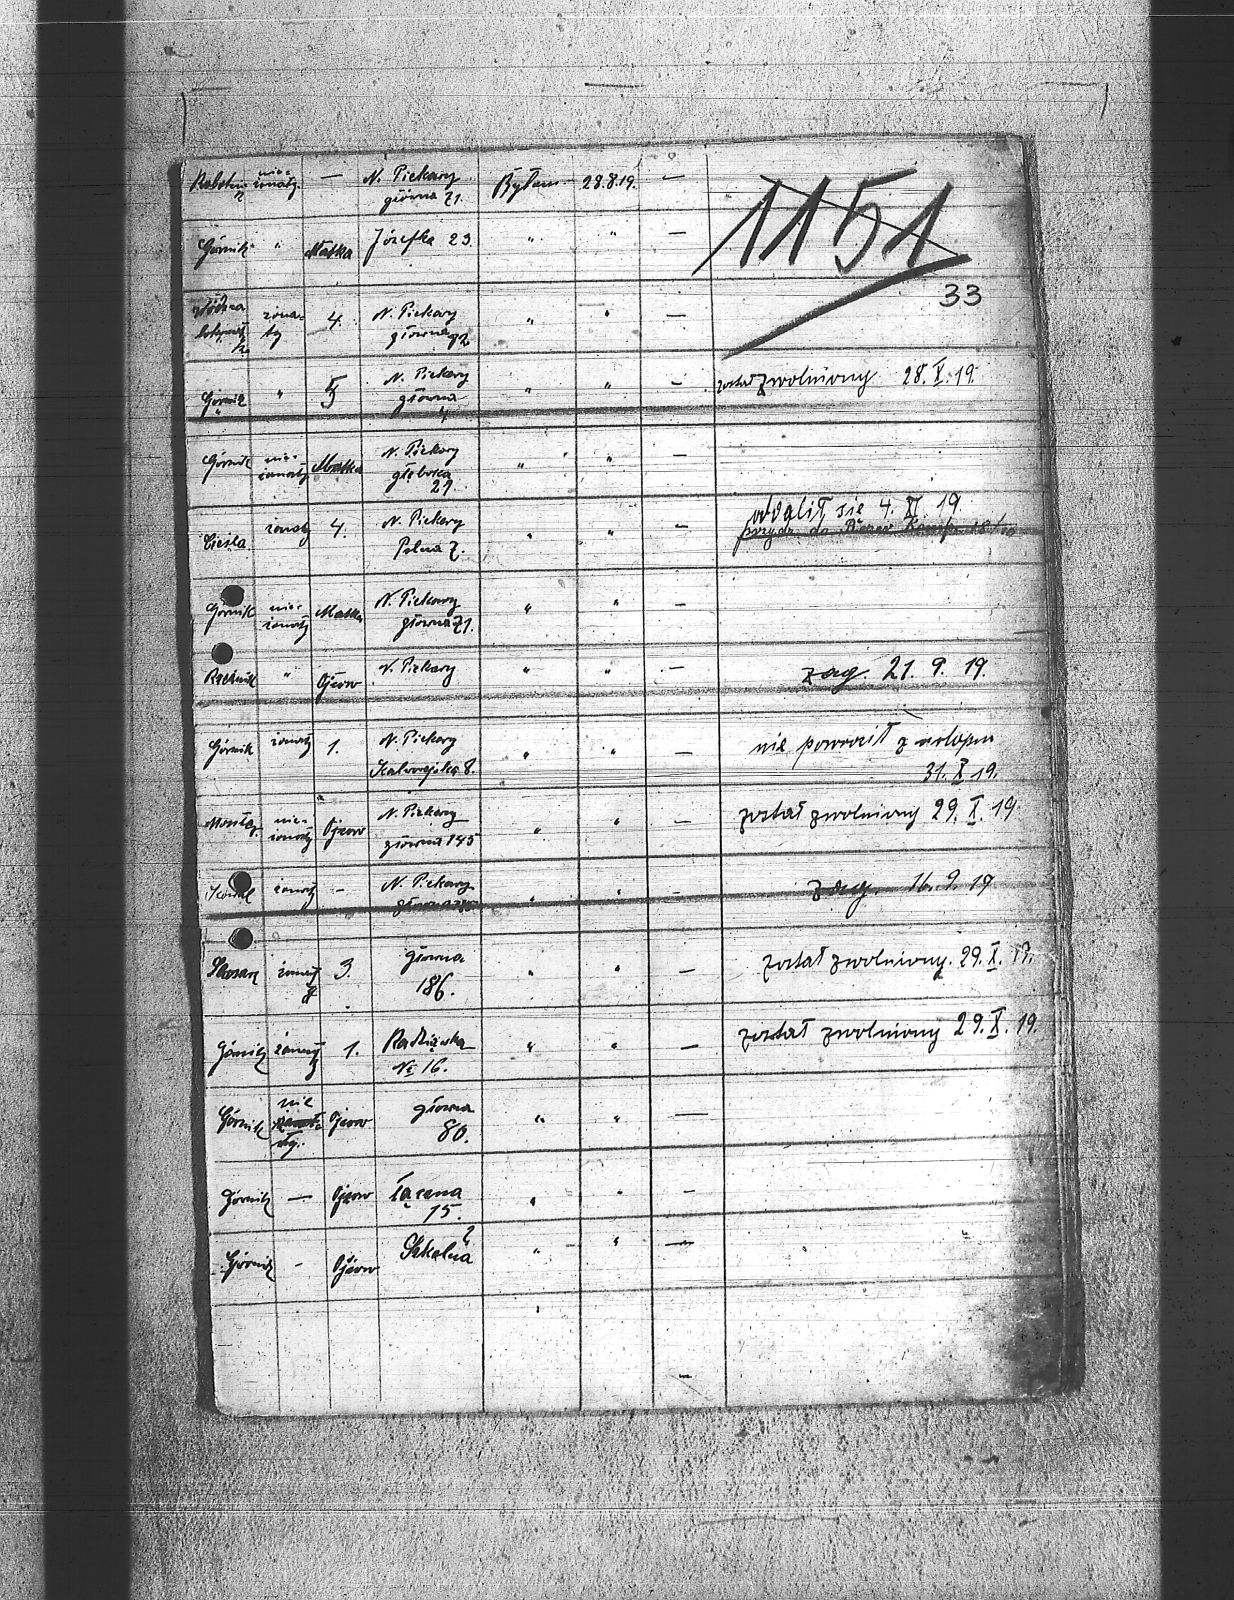 Robotnik nieżonaty. — N. Piekary główna 71. Bytom 28.8.19. —
1151
33
Górnik " Matka Józefka 23. " " —
żonaty 4. N. Piekary główna 92 " " —
Górnik " 5 N. Piekary główna 4 " " — został zwolniony 28. X. 19.
Górnik nieżonaty Matka N. Piekary głęboka 27. " " —
Cieśla żonaty 4. N. Piekary Polna 7. " " — oddalił się 4. XI. 19.
Górnik nieżonaty Matka N. Piekary główna 71. " " —
" Ojciec N. Piekary " " — zag. 21. 9. 19.
Górnik żonaty 1. N. Piekary Kalwaryjska 8. " " — nie powrócił z urlopu
31. X 19.
nieżonaty Ojciec N. Piekary główna 145 " " — został zwolniony 29. X. 19.
Kowal żonaty — N. Piekary " " — zag. 16. 9. 19
żonaty 3. główna 186. " " — został zwolniony. 29. X. 19.
Górnik żonaty 1. № 16. " " — został zwolniony 29. X. 19.
Górnik nie Ojciec główna 80. " " —
Górnik — Ojciec Łączna 15. " " —
Górnik - Ojciec Szkolna 2 " " —